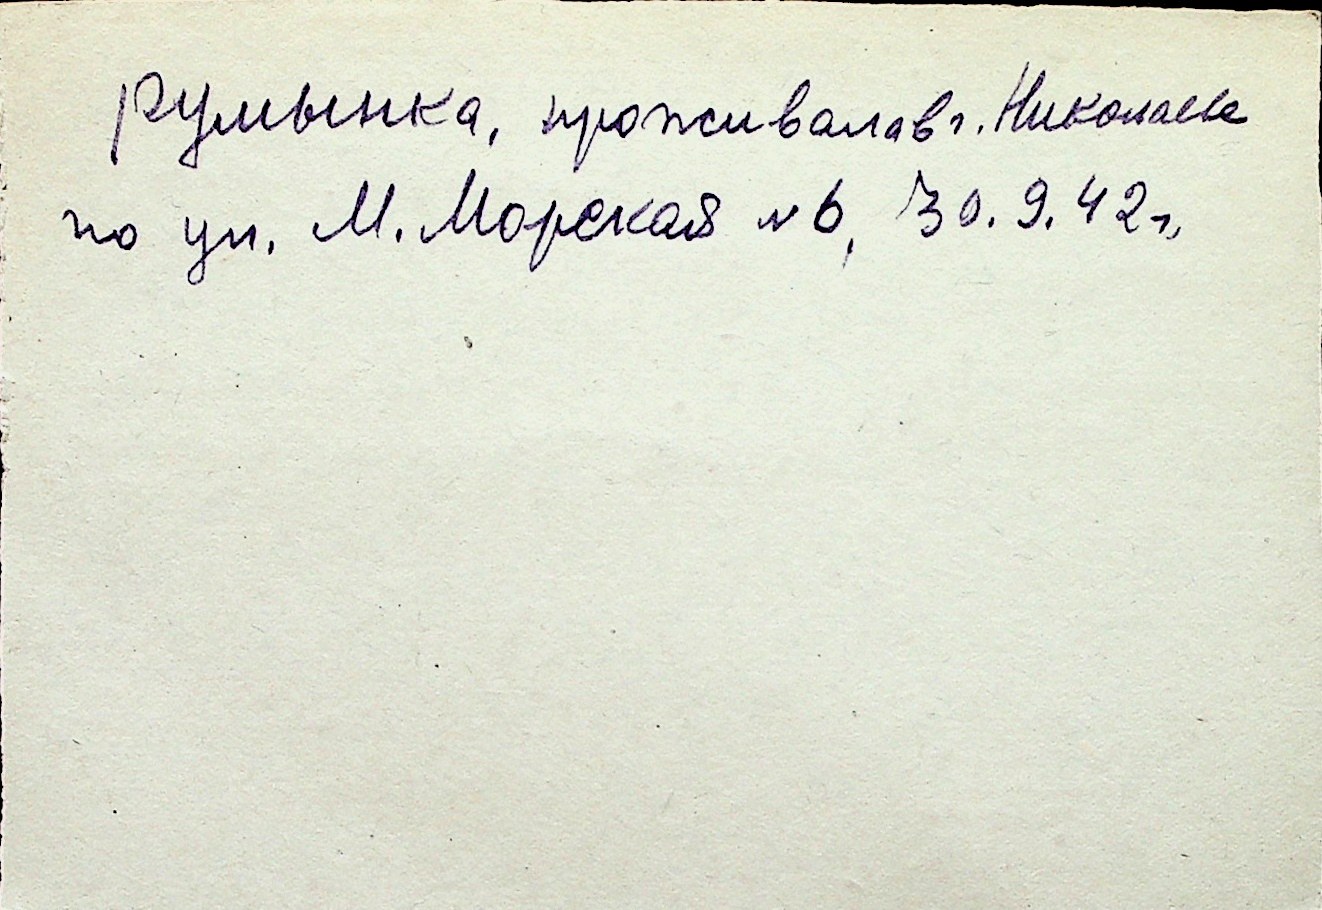 румынка, проживала в г. Николаеве
по ул. М. Морская № 6, 30.9.42 г,